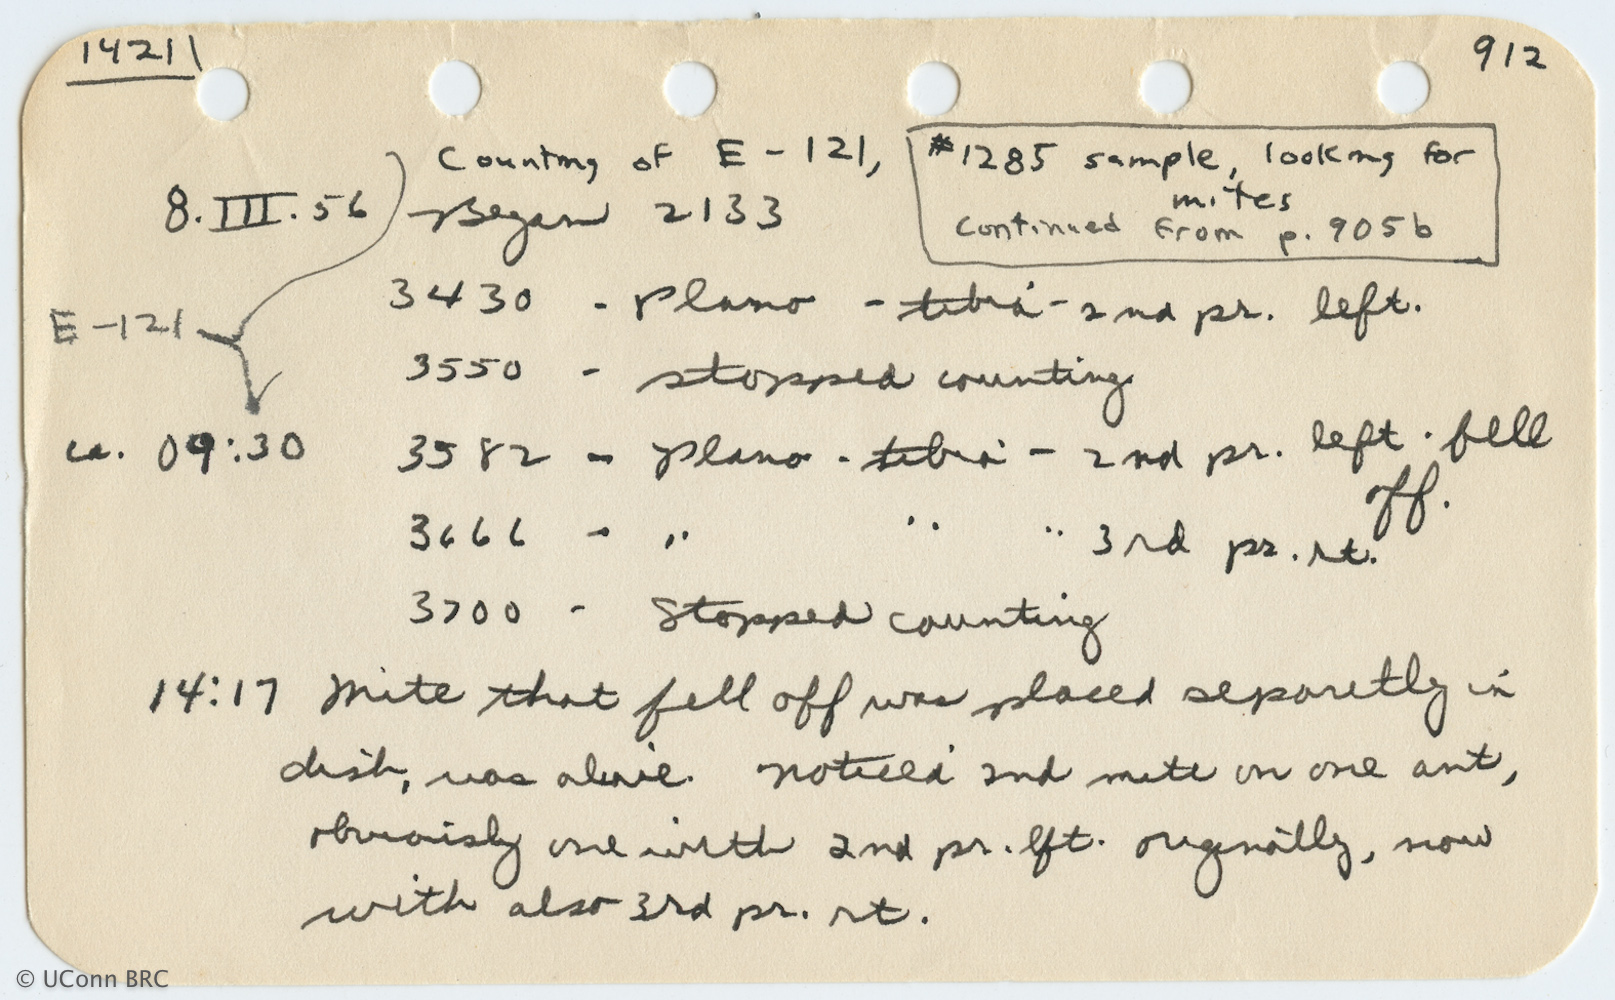 14211
912
Counting of E-121,
#1285 sample, looking for
mites
continued from p. 905b
8.III.56
Began 2133
3430 - Plano - tibia - 2nd pr. left.
E-121
3550 - stopped counting
ca. 09:30 3582 - Plano - tibia - 2nd pr. left. fell
off.
3666 - " " " 3rd pr. rt.
3700 - Stopped counting
14:17 Mite that fell off was placed separetly in
dish, was alive. Noticed 2nd mite on one ant,
obviously one with 2nd pr. lft. originally, now
with also 3rd pr. rt.
© UConn BRC